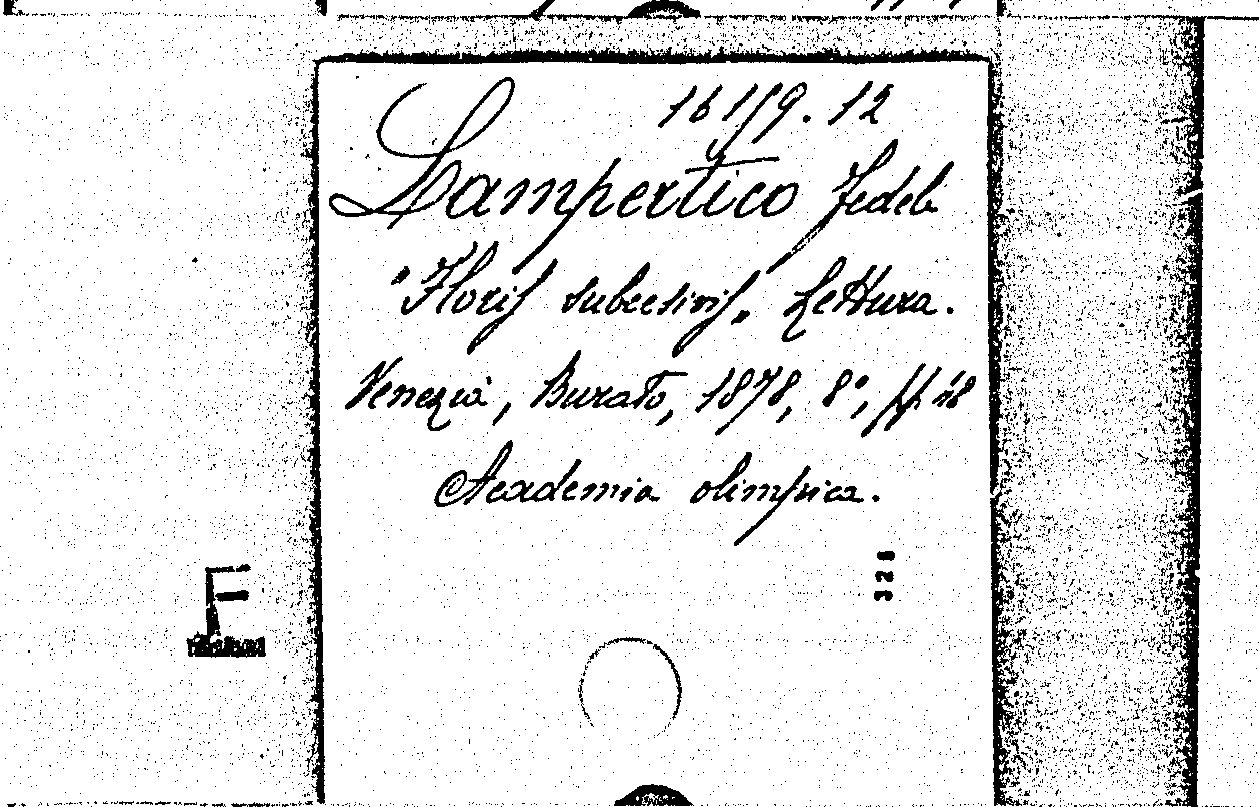 161/9.12
Lampertico Fedele
"Horis subcesivis„ Lettura.
Venezia, Burato, 1878, 8°, pp. 18
Academia olimpica.
328
F